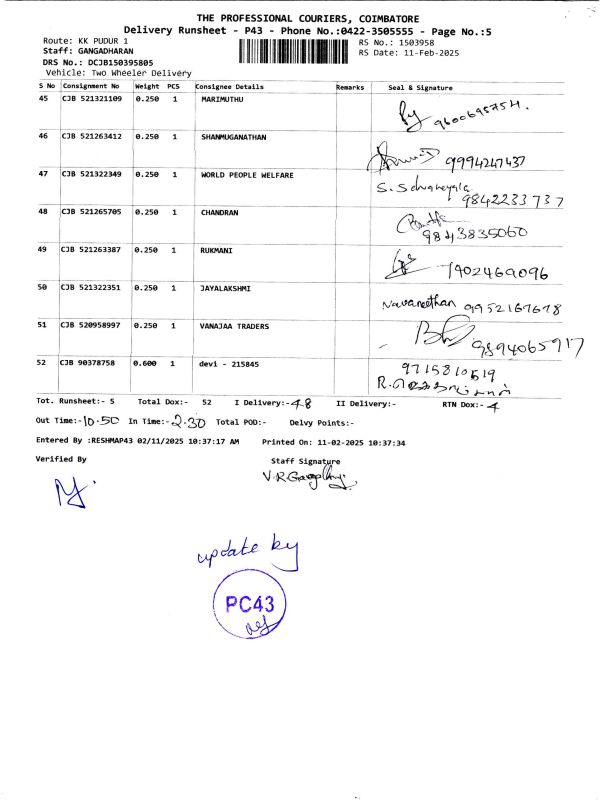 THE PROFESSIONAL COURIERS, COIMBATORE
Delivery Runsheet - P43 - Phone No.:0422-3505555 - Page No.:5
Route: KK PUDUR 1 RS No.: 1503958
Staff: GANGADHARAN RS Date: 11-Feb-2025
DRS No.: DCJB150395805
Vehicle: Two Wheeler Delivery
S No Consignment No Weight PCS Consignee Details Remarks Seal & Signature
45 CJB 521321109 0.250 1 MARIMUTHU
46 CJB 521263412 0.250 1 SHANMUGANATHAN 9994247437
47 CJB 521322349 0.250 1 WORLD PEOPLE WELFARE 9842233737
48 CJB 521265705 0.250 1 CHANDRAN 9843835060
49 CJB 521263387 0.250 1 RUKMANI 7902469096
50 CJB 521322351 0.250 1 JAYALAKSHMI Navaneethan 9952167678
51 CJB 520958997 0.250 1 VANAJAA TRADERS 9894065917
52 CJB 90378758 0.600 1 devi - 215845 9715810519
Tot. Runsheet:- 5 Total Dox:- 52 I Delivery:- 48 II Delivery:- RTN Dox:- 4
Out Time:- 10.50 In Time:- 2.30 Total POD:- Delvy Points:-
Entered By :RESHMAP43 02/11/2025 10:37:17 AM Printed On: 11-02-2025 10:37:34
Verified By Staff Signature
update by
PC43